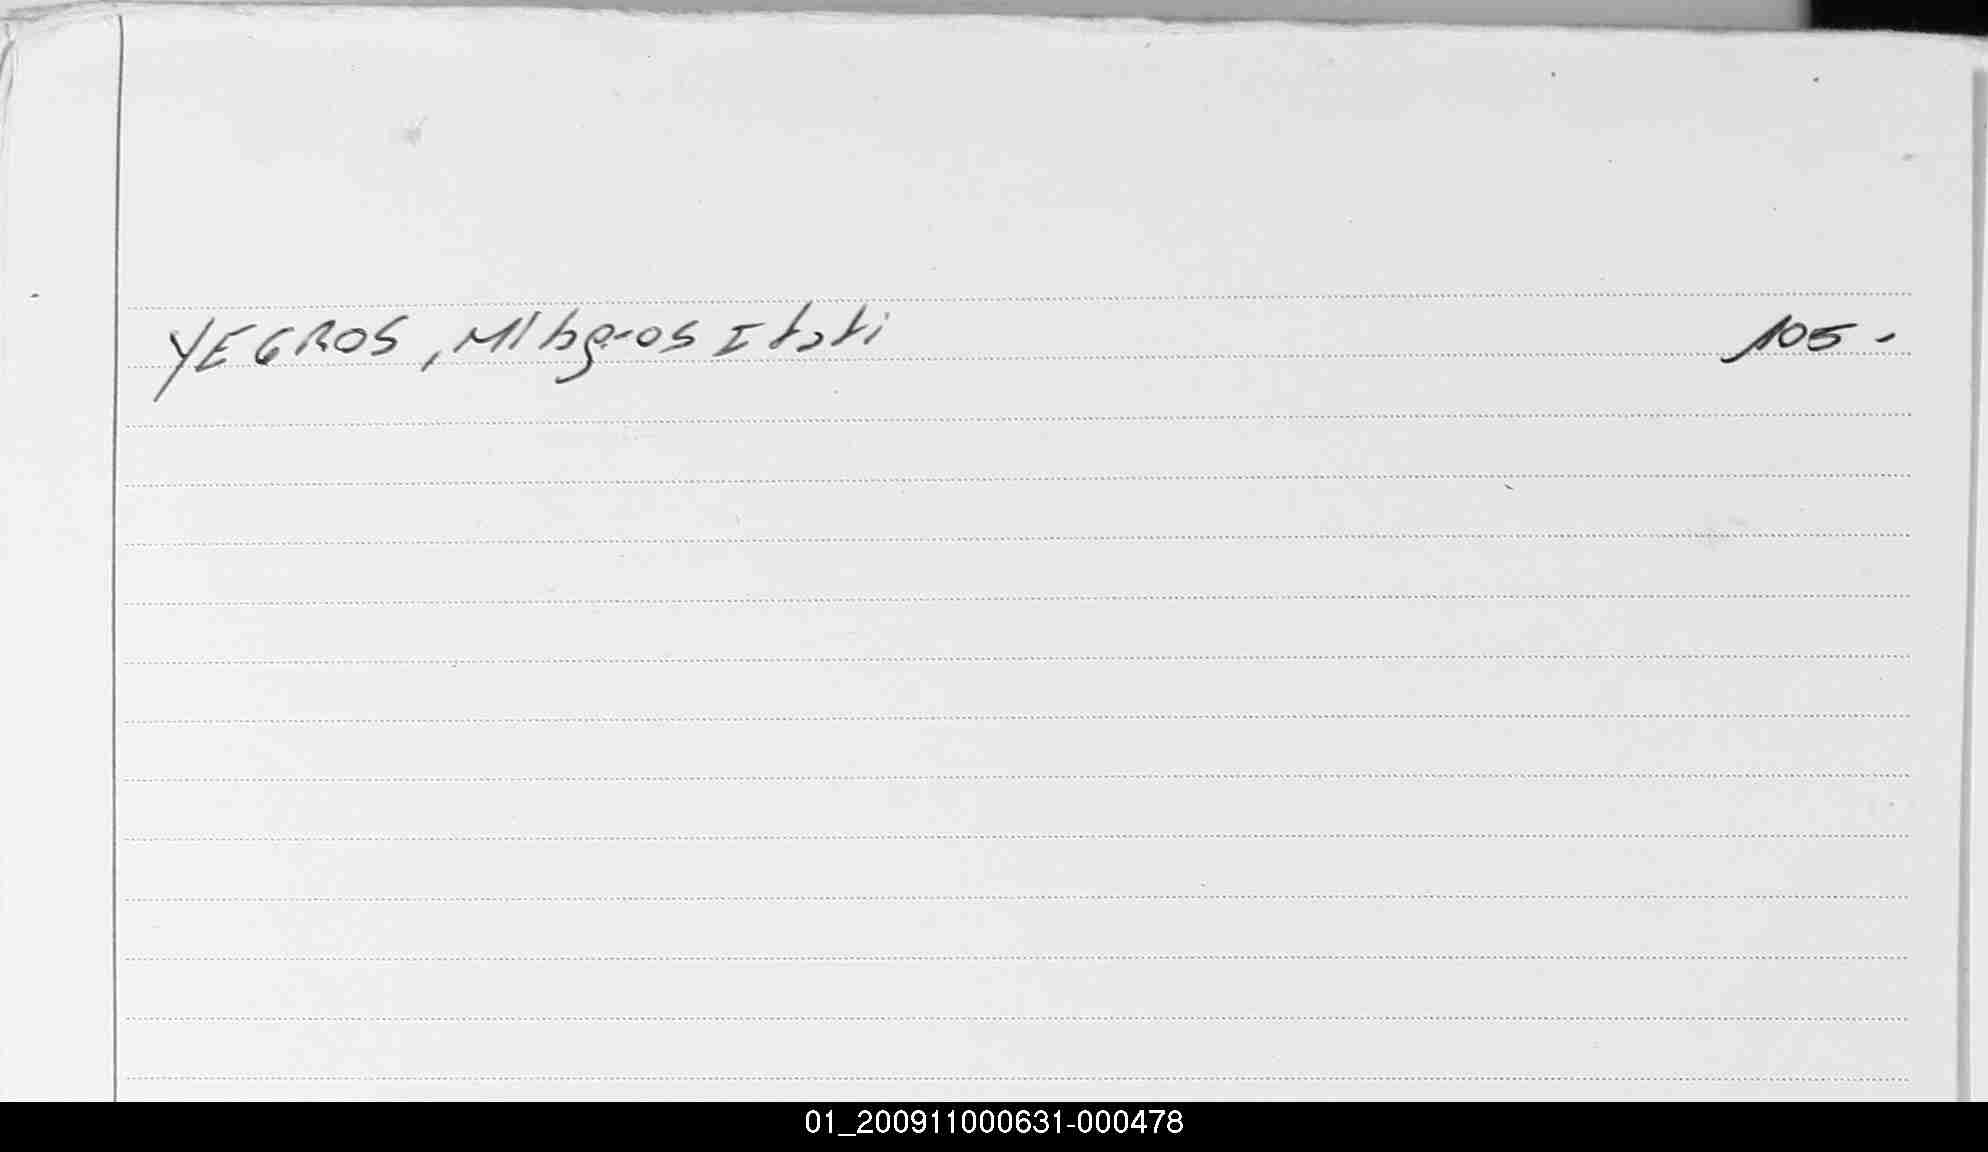 YEGROS, Milagros Itati 105.-
01_200911000631-000478